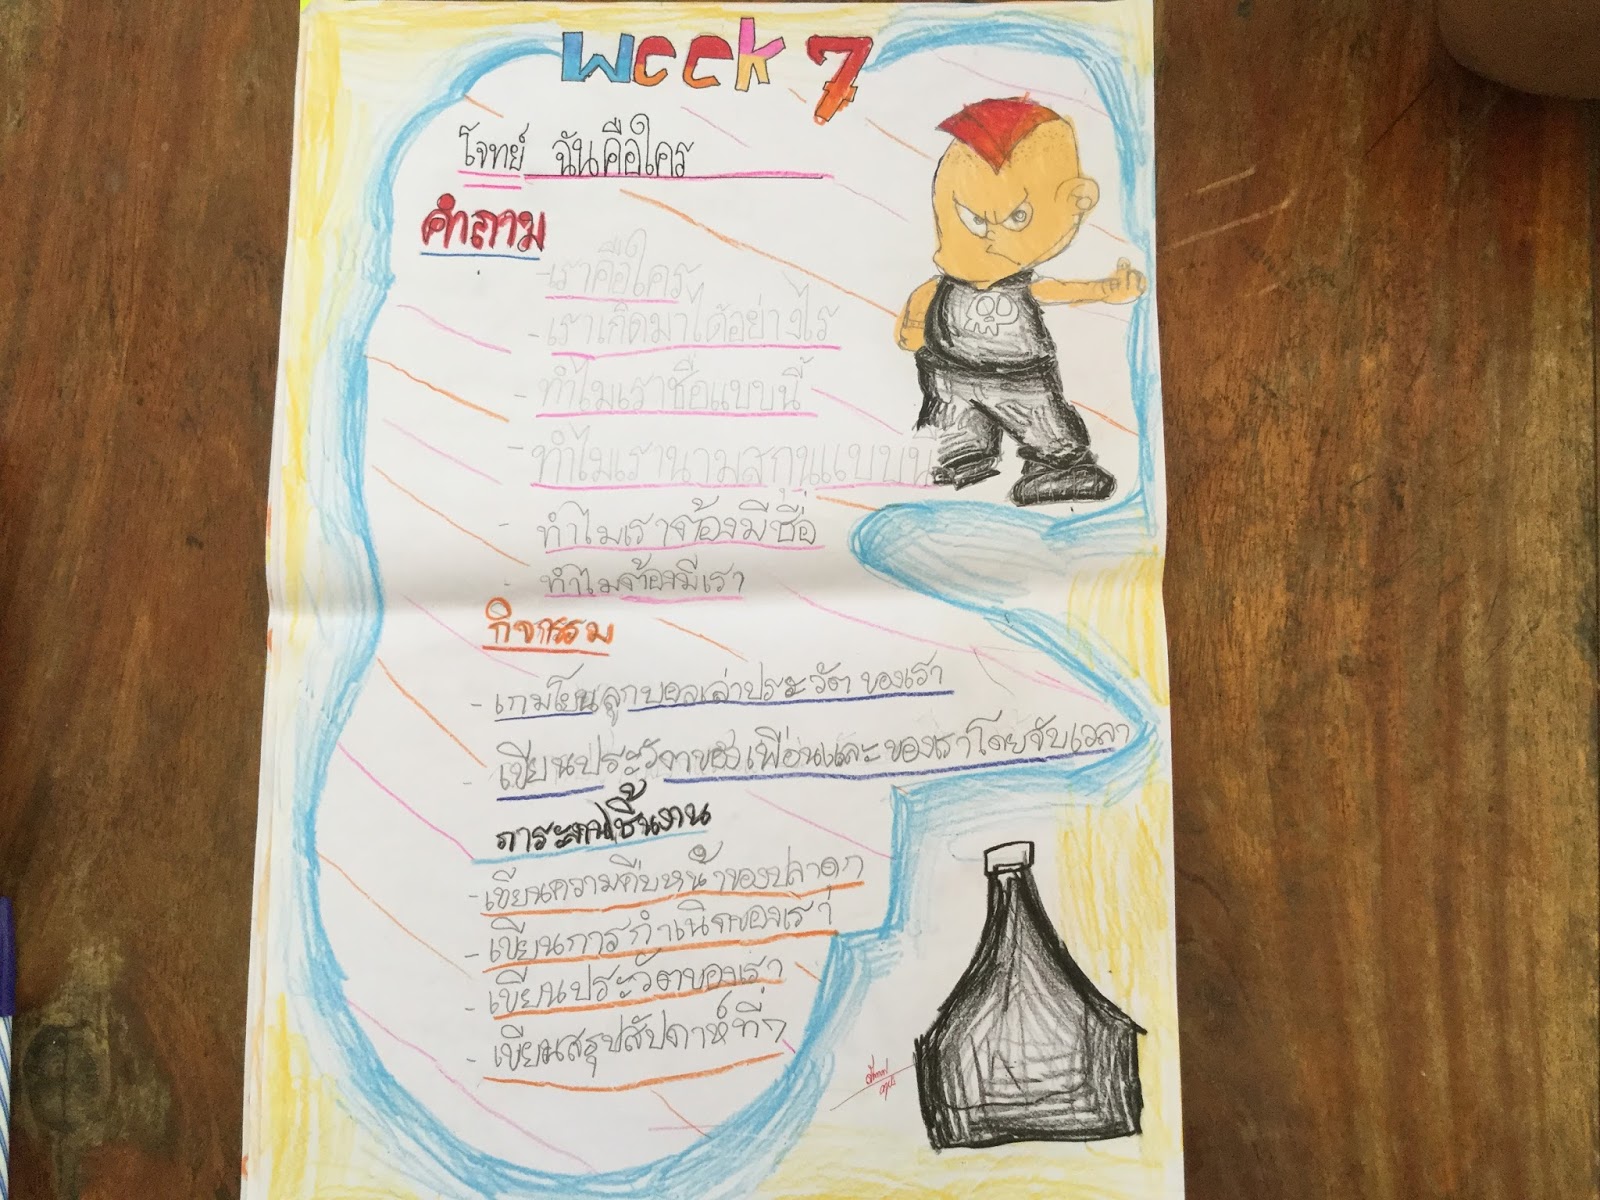 Week 7
โจทย์ ฉันคือใคร
คำถาม
-เราคือใคร
-เราเกิดมาได้อย่างไร
-ทำไมเราชื่อแบบนี้
-ทำไมเรานามสกุลแบบนี้
-ทำไมเราต้องมีชื่อ
-ทำไมต้องมีเรา
กิจกรรม
-เกมโยนลูกบอลเล่าประวัตของเรา
-เขียนประวัตของเพื่อนและของเราโดยจับเวลา
ภาระงาน/ชิ้นงาน
-เขียนความคืบหน้าของปลาดุก
-เขียนการกำเนิดของเรา
-เขียนประวัตของเรา
-เขียนสรุปสัปดาห์ที่7